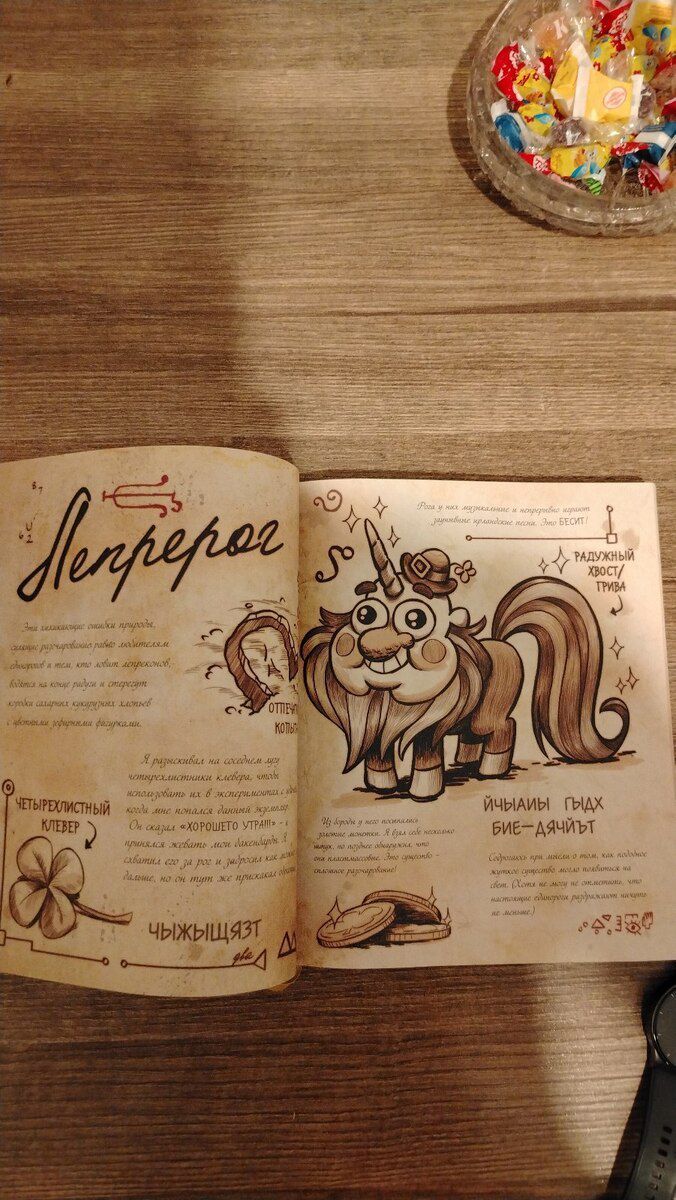 Лепрерог
Эти хихикающие ошибки природы,
сулящие разочарование равно любителям
единорогов и тем, кто ловит лепреконов,
водятся на конце радуги и стерегут
коробки сахарных кукурузных хлопьев
с цветными зефирными фигурками.
Я разыскивал на соседнем лугу
четырехлистники клевера, чтобы
использовать их в экспериментах с
когда мне попался данный экземпляр.
Он сказал «ХОРОШЕГО УТРА!!!» - и
принялся жевать мои бакенбарды. Я
схватил его за рог и
дальше, но он тут же прискакал
ЧЕТЫРЕХЛИСТНЫЙ
КЛЕВЕР
ЧЫЖЫЩЯЗТ
два
Рога у них музыкальные и непрерывно играют
заунывные ирландские песни. Это БЕСИТ!
РАДУЖНЫЙ
ХВОСТ/
ГРИВА
Из бороды у него посыпались
золотые монетки. Я взял себе несколько
штук, но позднее обнаружил, что
они пластмассовые. Это существо -
сплошное разочарование!
ЙЧЫАИЫ ГЫДХ
БИЕ-ДЯЧЙЪТ
Содрогаюсь при мысли о том, как подобное
жуткое существо могло появиться на
свет. (Хотя не могу не отметить, что
настоящие единороги раздражают ничуть
не меньше.)